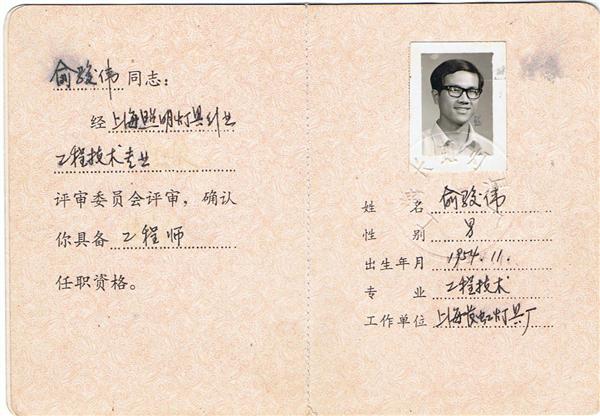 俞骏伟同志：
经上海照明灯具行业
工程技术专业
评审委员会评审，确认
你具备工程师
任职资格。
姓 名 俞骏伟
性 别 男
出生年月 1954.11.
专 业 工程技术
工作单位 上海 灯具厂